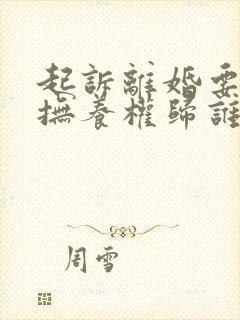 起訴離婚要
撫養權歸誰
周雪